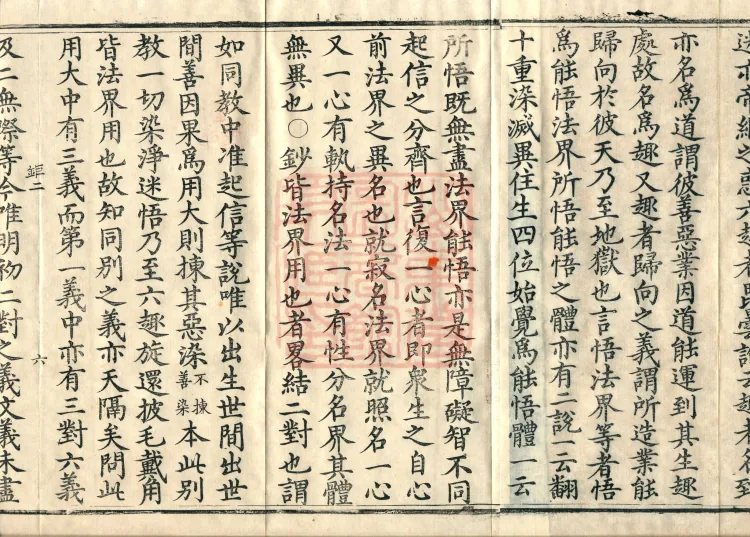 亦名為道謂彼善惡業因道能運到其生趣
處故名為趣又趣者歸向之義謂所造業能
歸向於彼天乃至地獄也言悟法界等者悟
為能悟法界所悟能悟之體亦有二說一云翻
十重染滅異住生四位始覺為能悟體一云
所悟既無盡法界能悟亦是無障礙智不同
起信之分齊也言復一心者即衆生之自心
前法界之異名也就寂名法界就照名一心
又一心有執持名法一心有性分名界其體
無異也〇鈔皆法界用也者畧結二對也謂
如同教中准起信等說唯以出生世間出世
間善因果為用大則揀其惡染不揀善染本此別
教一切染淨迷悟乃至六趣旋還披毛戴角
皆法界用也故知同別之義亦天隔矣問此
用大中有三義而第一義中亦有三對六義
二
六
及二無際等今唯明初二對之義文義未盡